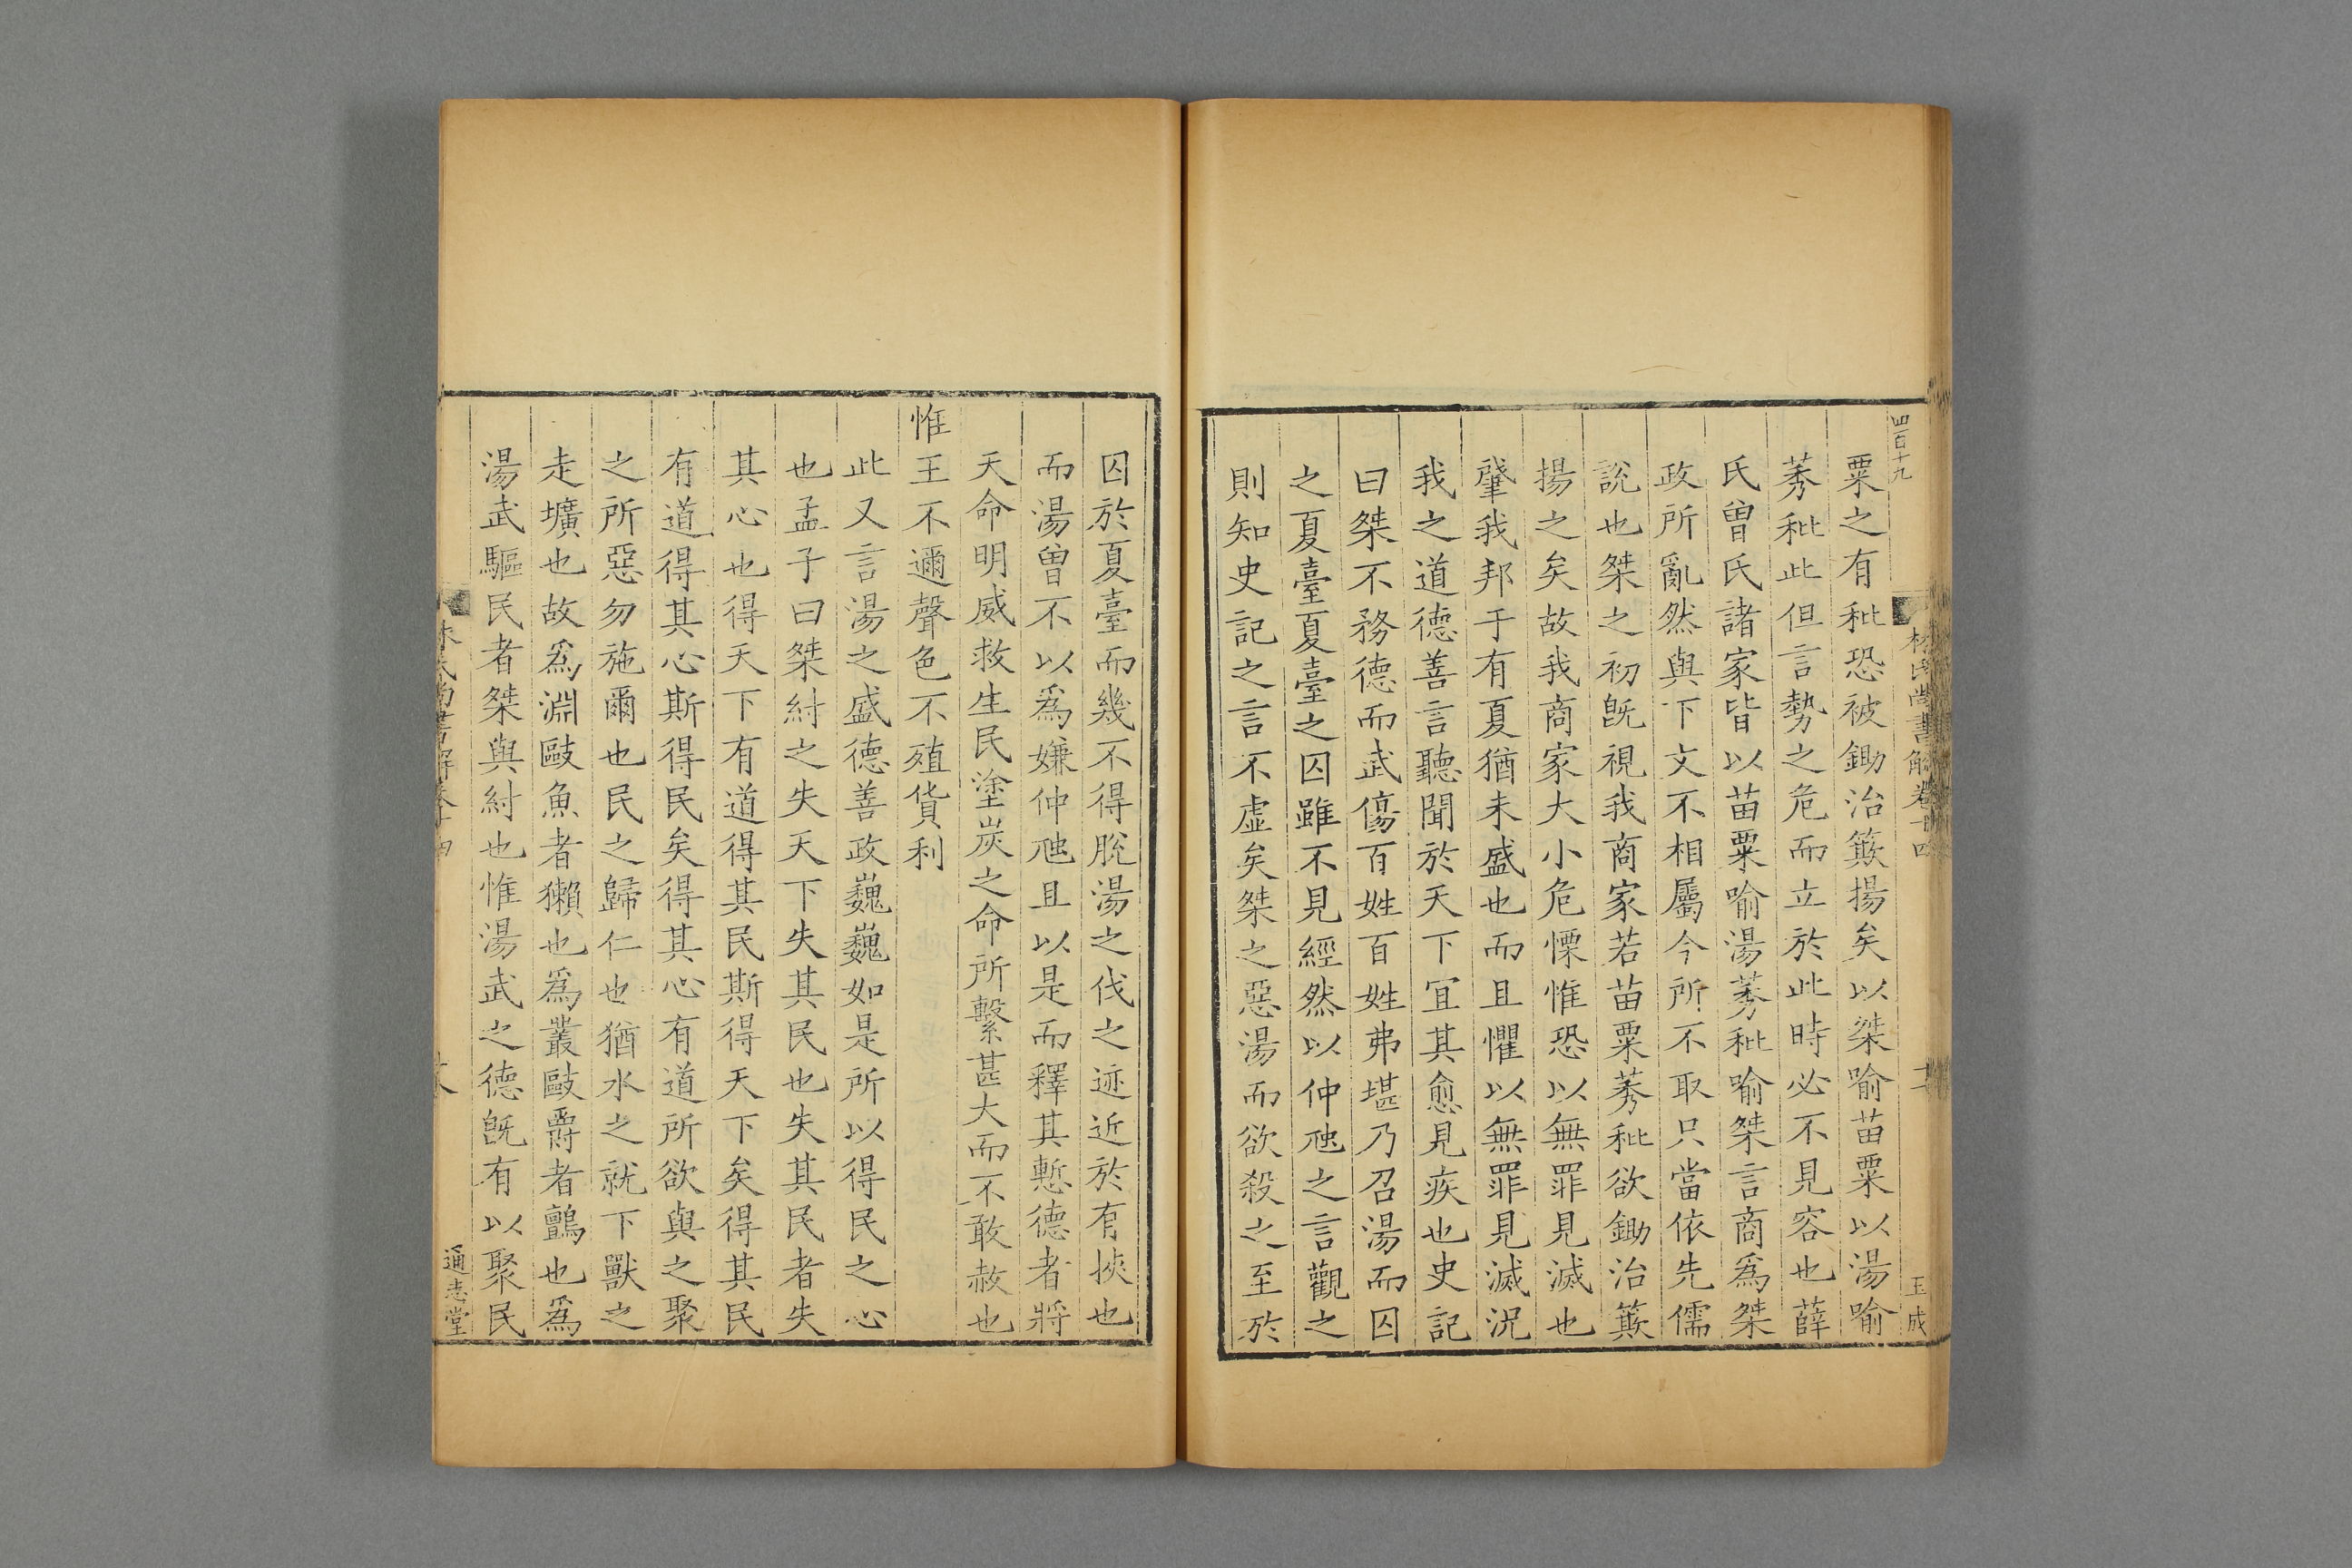 四百十九
林氏尚書解卷十四
王成
粟之有秕恐被鋤治簸揚矣以桀喻苗粟以湯喻
莠秕此但言勢之危而立於此時必不見容也薛
氏曾氏諸家皆以苗粟喻湯莠秕喻桀言商爲桀
政所亂然與下文不相屬今所不取只當依先儒
說也桀之初旣視我商家若苗粟莠秕欲鋤治簸
揚之矣故我商家大小危慄惟恐以無罪見滅也
肇我邦于有夏猶未盛也而且懼以無罪見滅況
我之道德善言聽聞於天下宜其愈見疾也史記
曰桀不務德而武傷百姓百姓弗堪乃召湯而囚
之夏臺夏臺之囚雖不見經然以仲虺之言觀之
則知史記之言不虛矣桀之惡湯而欲殺之至於
囚於夏臺而幾不得脫湯之伐之迹近於有挾也
而湯曾不以爲嫌仲虺且以是而釋其慙德者將
天命明威救生民塗炭之命所繫甚大而不敢赦也
惟王不邇聲色不殖貨利
此又言湯之盛德善政巍巍如是所以得民之心
也孟子曰桀紂之失天下失其民也失其民者失
其心也得天下有道得其民斯得天下矣得其民
有道得其心斯得民矣得其心有道所欲與之聚
之所惡勿施爾也民之歸仁也猶水之就下獸之
走壙也故爲淵敺魚者獺也爲叢敺爵者鸇也爲
湯武驅民者桀與紂也惟湯武之德旣有以聚民
林氏尚書解卷十四
通志堂